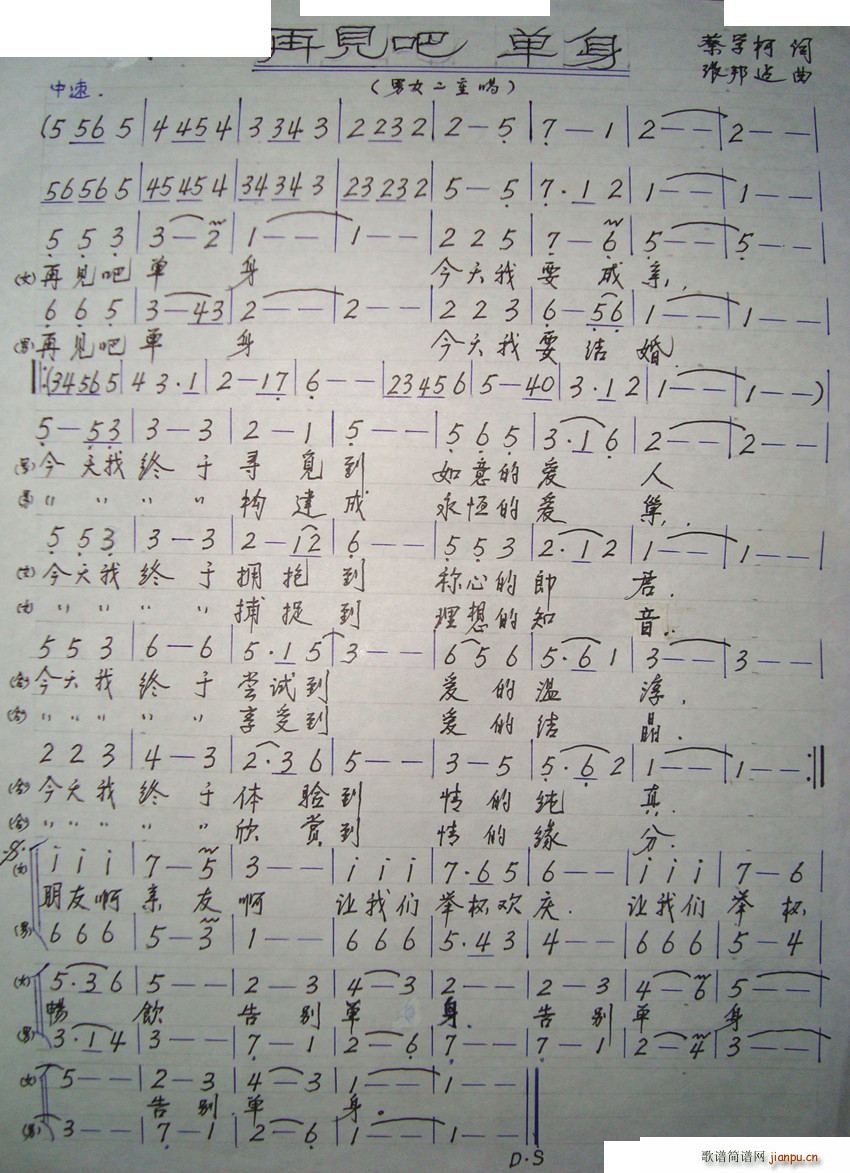 再見吧 单身
蔡学柯 词
张邦达 曲
中速.
(男女二重唱)
(5 56 5 | 4 45 4 | 3 34 3 | 2 23 2 | 2 — 5 | 7 — 1 | 2 — — | 2 — — |
56 56 5 | 45 45 4 | 34 34 3 | 23 23 2 | 5 — 5 | 7 · 1 2 | 1 — — | 1 — — |
5 5 3 | 3 — 2 | 1 — — | 1 — — | 2 2 5 | 7 — 6 | 5 — — | 5 — — |
(女) 再見吧 单 身 今天我 要 成 亲,
6 6 5 | 3 — 43 | 2 — — | 2 — — | 2 2 3 | 6 — 56 | 1 — — | 1 — — |
(男) 再見吧 单 身 今天我 要 结 婚.
‖: (34 56 5 | 4 3 · 1 | 2 — 17 | 6 — — | 23 45 6 | 5 — 40 | 3 · 1 2 | 1 — — | 1 — — )
5 — 53 | 3 — 3 | 2 — 1 | 5 — — | 5 6 5 | 3 · 1 6 | 2 — — | 2 — — |
(男) 今 天我 终 于 寻 觅 到 如意的 爱 人
(男) " " " " " 构 建 成 永恒的 爱 巢,
5 5 3 | 3 — 3 | 2 — 12 | 6 — — | 5 5 3 | 2 · 1 2 | 1 — — | 1 — — |
(女) 今天我 终 于 拥 抱 到 称心的 郎 君.
(女) " " " " " 捕 捉 到 理想的 知 音.
5 5 3 | 6 — 6 | 5 · 1 5 | 3 — — | 6 5 6 | 5 · 6 1 | 3 — — | 3 — — |
(合) 今天我 终 于 尝试到 爱 的 温 淳,
(合) " " " " " 享受到 爱 的 结 晶.
2 2 3 | 4 — 3 | 2 · 3 6 | 5 — — | 3 — 5 | 5 · 6 2 | 1 — — | 1 — — :‖
(合) 今天我 终 于 体 验到 情 的 纯 真.
(合) " " " " " 欣 赏到 情 的 缘 分.
(女) i i i | 7 — 5 | 3 — — | i i i | 7 · 6 5 | 6 — — | i i i | 7 — 6 |
朋友啊 亲 友 啊 让我们 举杯欢 庆. 让我们 举 杯
(男) 6 6 6 | 5 — 3 | 1 — — | 6 6 6 | 5 · 4 3 | 4 — — | 6 6 6 | 5 — 4 |
(女) 5 · 3 6 | 5 — — | 2 — 3 | 4 — 3 | 2 — — | 2 — 3 | 4 — 6 | 5 — — |
畅 飲 告 别 单 身. 告 别 单 身
(男) 3 · 1 4 | 3 — — | 7 — 1 | 2 — 6 | 7 — — | 7 — 1 | 2 — 4 | 3 — — |
(女) 5 — — | 2 — 3 | 4 — 3 | 1 — — | 1 — — ‖
告 别 单 身。
(男) 3 — — | 7 — 1 | 2 — 6 | 1 — — | 1 — — ‖
D·S
歌谱简谱网 jianpu.cn